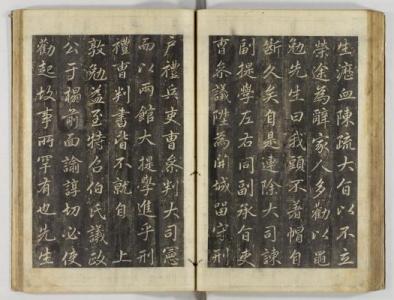 生瀝血陳疏大旨以不立
榮途為辭家人多勸以黽
勉先生曰我頭不著帽自
斷久矣自是連除大司諫
副提學左右同副承旨吏
曹叅議陞為開城留守刑
戶禮兵吏曹叅判大司憲
而以兩館大提學進乎刑
禮曹判書皆不就自 上
敦勉益至特召伯氏議政
公于榻前面諭諄切必使
勸起故事所罕有也先生